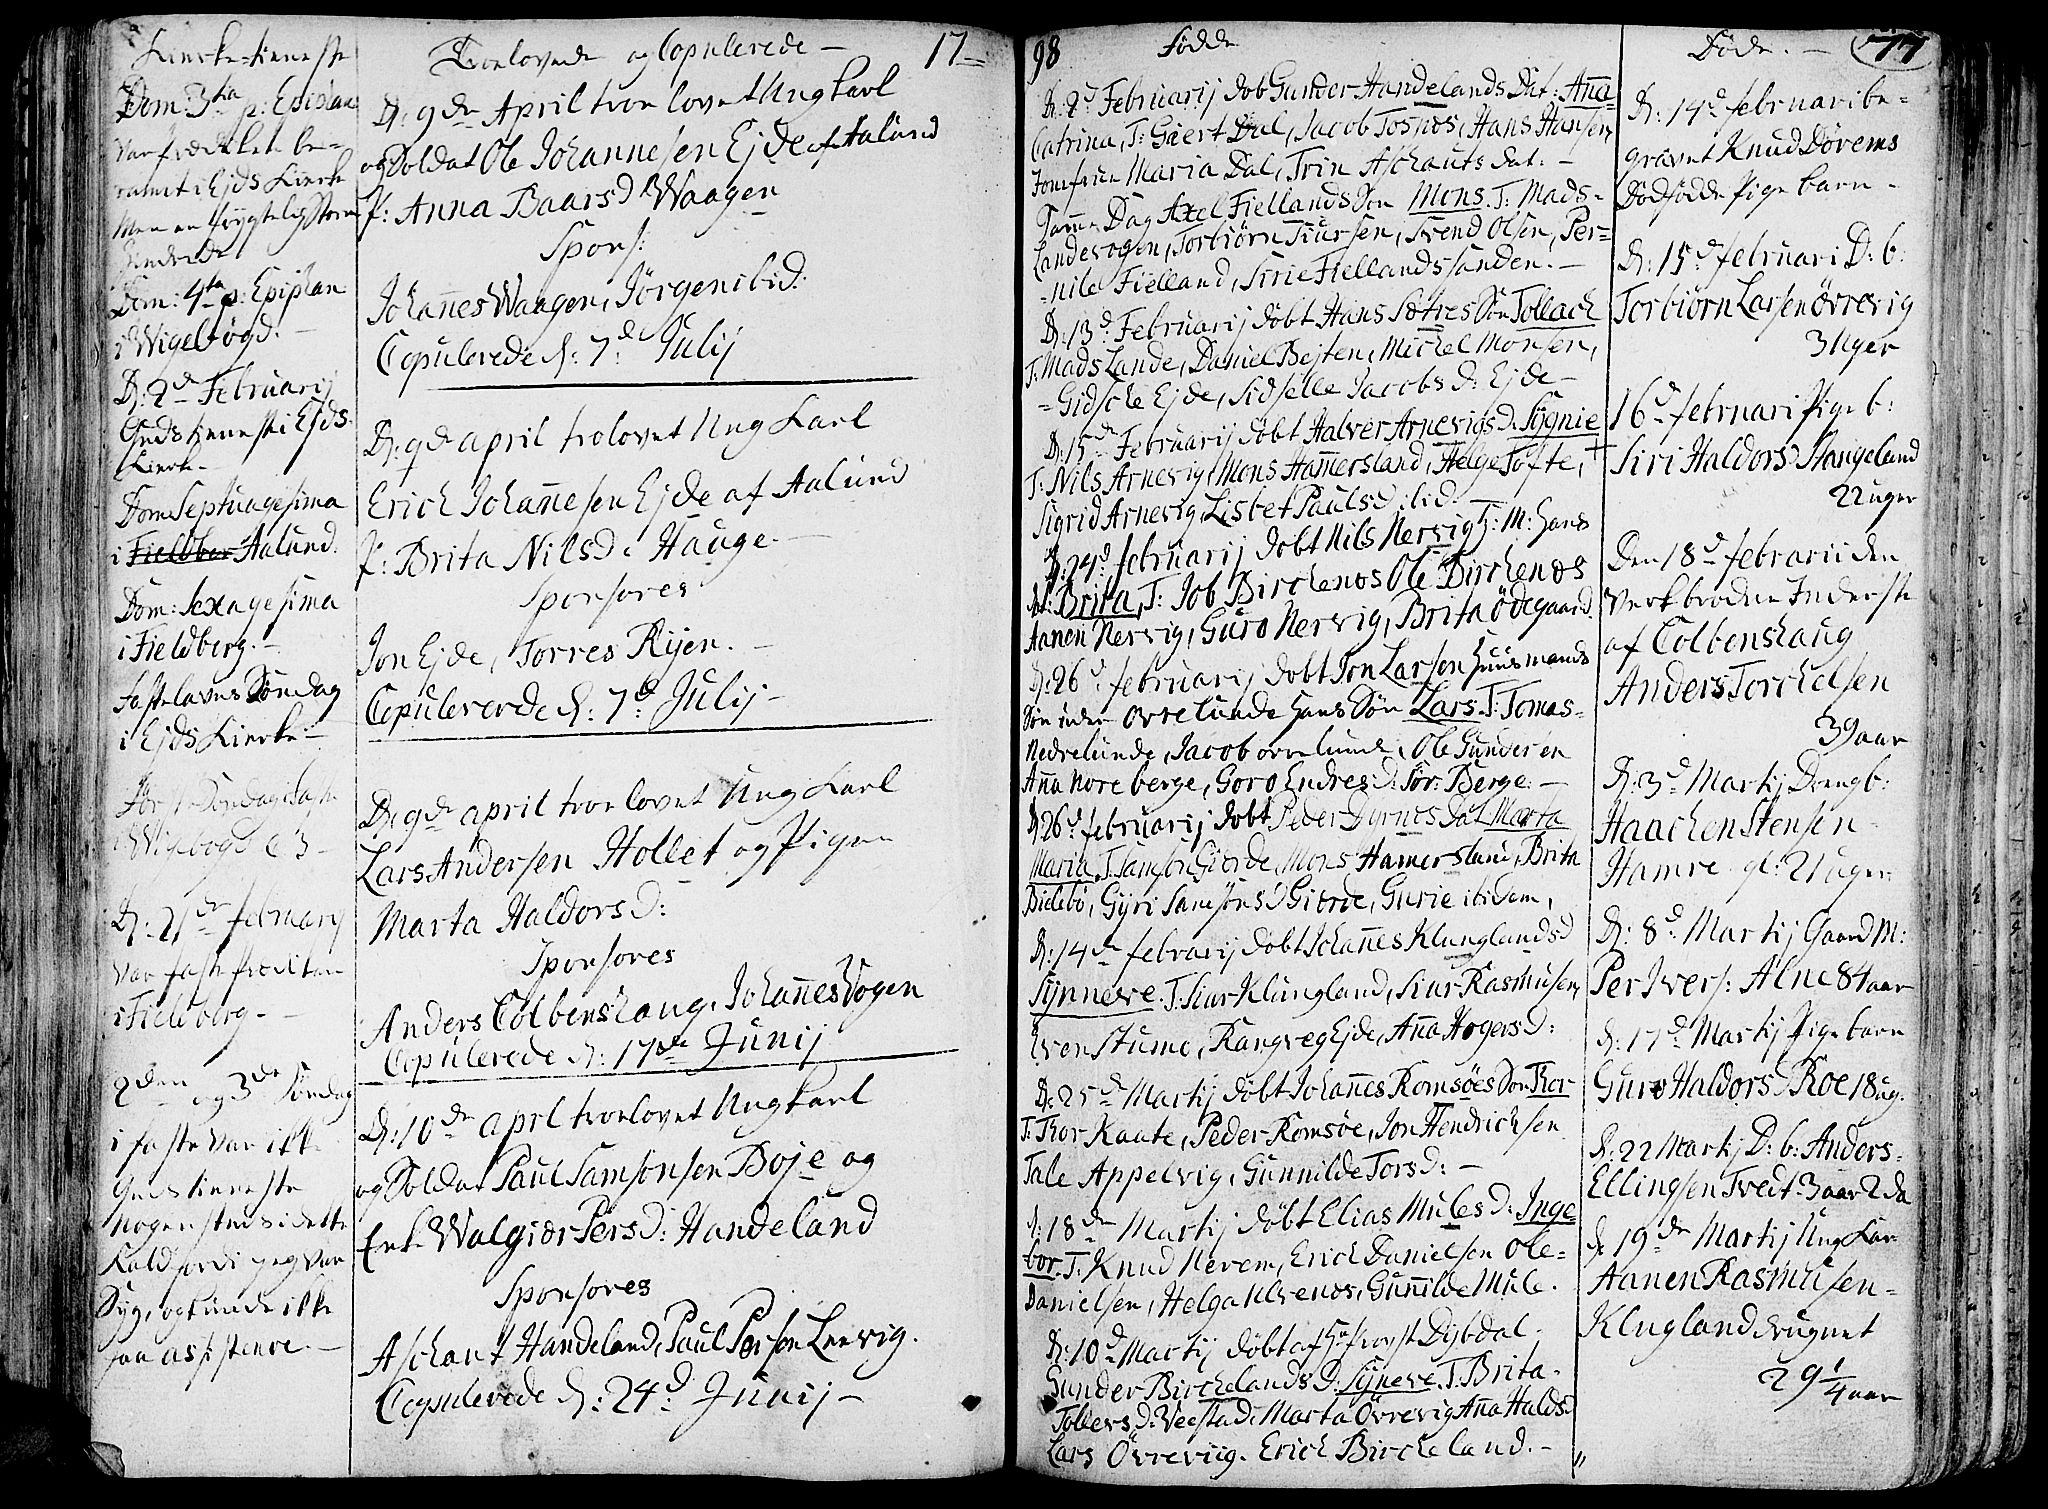 Kierke-tieneste
Dom: 3tia p: Epiphan
var frædiket be-
ramt i Ejds Kierke
Men en frygtelig Storm
hindrede
Dom: 4ta p: Epiphan
i Wigebøgd. -
D: 2d Februarij
Gudstieneste i Ejds
Kierke -
Dom Septuagesima
i Fieldber Aalund.
Dom: Sexagesima
i Fieldberg. -
Fastelavns Søndag
i Ejds Kierke -
Første Søndag i Faste
i Wigebøgd
D: 21de februarij
var faste
i Fieldberg. -
2den og 3de Søndag
i faste var ikke
Gudstieneste
Nogensteds i dette
Kald fordi jeg var
Syg, og kunde ikke
faa assistence. -
Troelovede og Copulerede - 17-
D: 9de April troelovet Ung Karl
og Soldat Ole Johannesen Ejde af Aalund
P: Anna Baarsd Waagen
Spons:
Johannes Waagen, Jørgen ibid:
Copulerede d: 7de Julij
D: 9de april trolovet Ung Karl
Erich Johannesen Ejde af Aalund
P: Brita Nilsd: Hauge. -
Sponsores
Jon Ejde, Torres Rijen. -
Copulerede d: 7d: Julij -
D: 9de april troelovet Ung Karl
Lars Andersen Hollet og Pigen
Marta Haldorsd:
Sponsores
Anders Colbenshaug, Johannes Vogen
Copulerede d: 17de Junij
D: 10de aprl troelovet Ung Karl
og Soldat Paul Samsonsen Boje og
Enke Walgiær Persd: Handeland
Sponsores
Aschaut Handeland, Paul Person Leervig.
Copulerede d: 24d: Junij -
98 Fødde
D: 2d Februarij Døb Gunder Handelands Dat: Anna
Catrina, T: Giert Dal, Jacob Tosnøs, Hans Hansen,
Jomfrue Maria Dal, Trin Aschauts Dat: -
Samme Dag Axel Fiellands Søn Mons. T: Mads-
Landevogen, Torbiørn Siursen, Svend Olsen, Per-
-nile Fielland, Sirie Fiellandssanden. -
D: 13d Februarij døbt Hans Sætres Søn Tollach
T: Mads Lande, Daniel Bejten, Michel Monsen,
-Gidsche Ejde, Sidselle Jacobsd: Ejde -
D: 15de Februarij døbt Halver Arnevigs d. Sygnie
T: Nils Arnevig, Mons Hammersland, Helge Tofte,
Sigrid Arnevig, Lisbet Paulsd: ibid. -
D: 24d februarij døbt Nils Nervig H: M: hans
dat: Brita, T: Job Birchenøs Ole Birchenøs
Aanen Nervig, Guro Nervig, Brita Ødegaard.
D: 26d februarij døbt Jon Larsen Huusmands
Søn under Øvrelunde hans Søn Lars T: Tomas-
Nedrelunde, Jacob øvrelunde, Ole Gundersen
Anna Noreberge, Goro Endresd: Sør: Berge. -
D: 26d februarij døbt Peder Dyrnøs Dat Marta
Maria T: Samson Gierde, Mons Hamersland, Brita
Bielebø, Gyri Samsonsd Gierde, Gurie ibidem,
D: 14de febrarij døbt Johannes Klunglandsd
Synneve. T: Siur Klungland, Siur Rasmusen,
Even Stumo, Rangveg Ejde, Anna Hogersd:
D: 25d Martij døbt Johannes Romsøes Søn Thor
T: Thor Kaate, Peder Romsøe, Jon Hendrichsen
Tale Appelvig, Gunnilde Torsd: -
d: 18de Martij døbt Elias Mules d: Inge
bor. T: Knud Nerem, Erich Danielsen Ole-
Danielsen, Helga Ulvenøs, Gunnilde Mule.
D: 10d Martij døbt af Hr Provst Dybdal
Gunder Birchelands D: Syneve. T: Brita-
Tollersd: Veestad, Marta Øvrevig Anna Haldsd
Lars Øvreviig. Erich Bircheland. -
Døde. - 77
D: 14d februari be-
gravet Knud Dørems
Dødfødde Pige barn -
D: 15d februari D: b:
Torbiørn Larsen Øvrevig
3 Uger
16d februari Pige b:
Siri Haldorsd Stangeland
22 uger
Den 18d febrarii den
Verkbrodne Inderste
af Colbenshaug
Anders Torchelsen
39 aar
D: 3d Martij Dreng b:
Haachen Stensen -
Hamre gl: 21 uger
D: 8d Martij Gaard M:
Per Ivers: Alne 84 aar
D: 17d Martij Pige barn
Guro Haldorsd Roe 18 ug.
D: 22 Martij D: b: Anders-
Ellingsen Tvedt 3 aar 2 da
d: 19de Martij Ung Kar
Aanen Rasmusen -
Klugland drugnet
29 1/4 aar